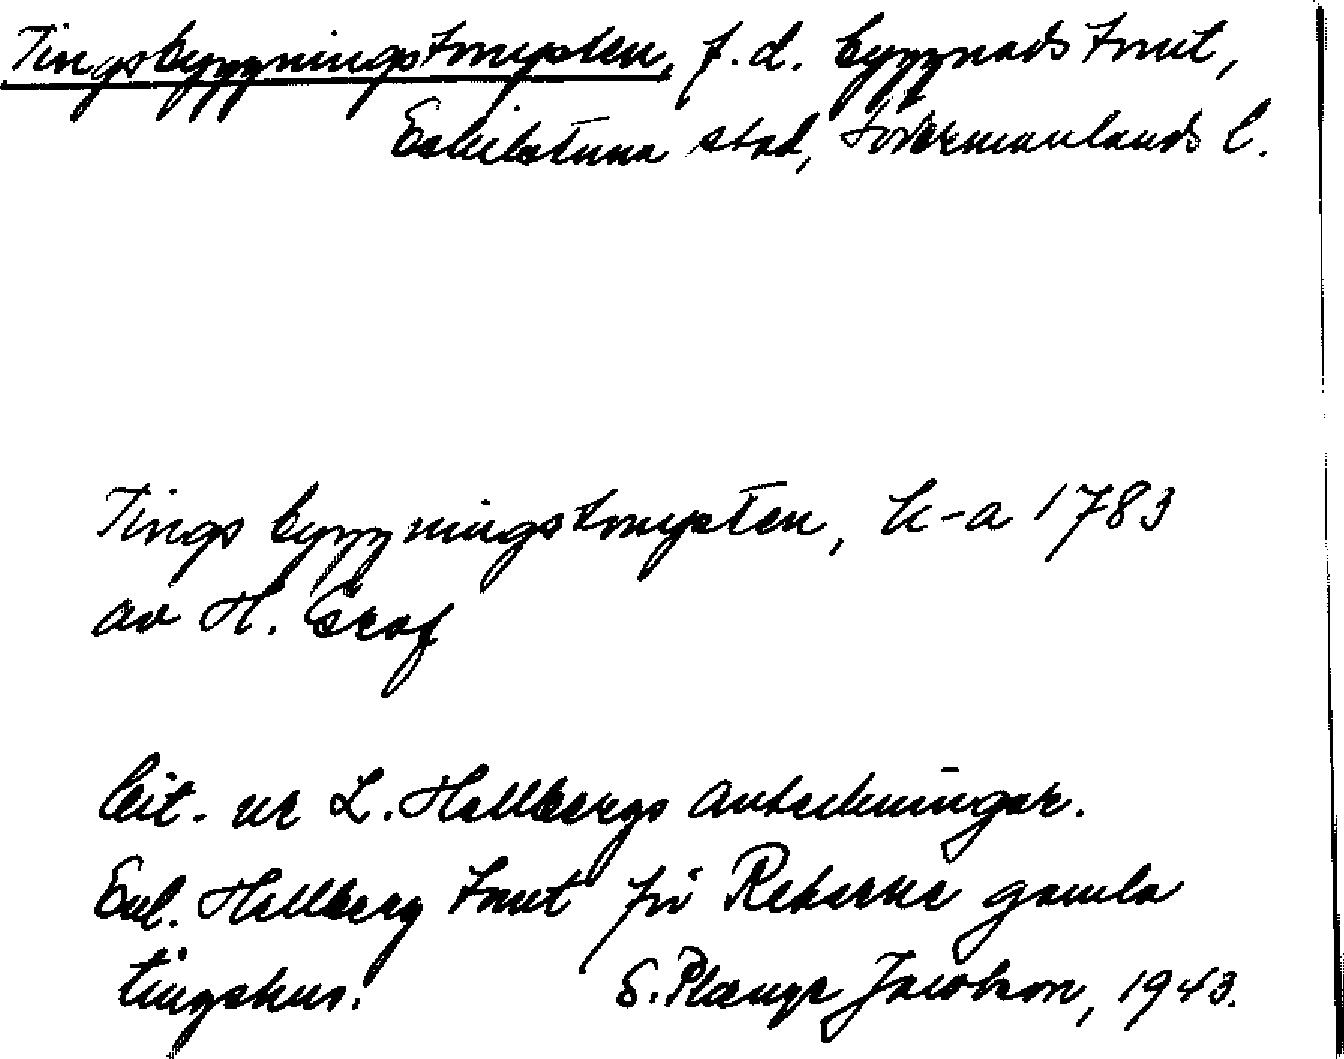 Tingsbyggningstompten, f.d. byggnadstomt,
Eskilstuna stad, Södermanlands l.
Tings byggningstompten, k-a 1783
av H. Graf
Cit. ur L. Hellbergs anteckningar.
Enl. Hellberg tomt för Rekarne gamla
tingshus. S. Plænge Jacobson, 1943.